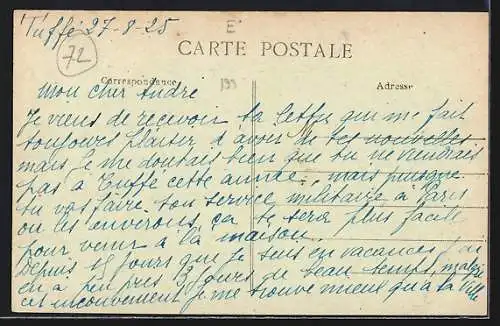 Tuffé 27-8-25
72
CARTE POSTALE
Correspondance
Adresse
Mon cher André
Je viens de recevoir ta lettre qui me fait
toujours plaisir d'avoir de tes nouvelles
mais je me doutais bien que tu ne viendrais
pas à Tuffé cette année, mais puisque
tu vas faire ton service militaire à Paris
ou les environs, ça te sera plus facile
pour venir à la maison.
Depuis 15 jours que je suis en vacances
en a peu près 13 jours de beau temps, malgré
cet inconvenient je me trouve mieux qu'à la ville